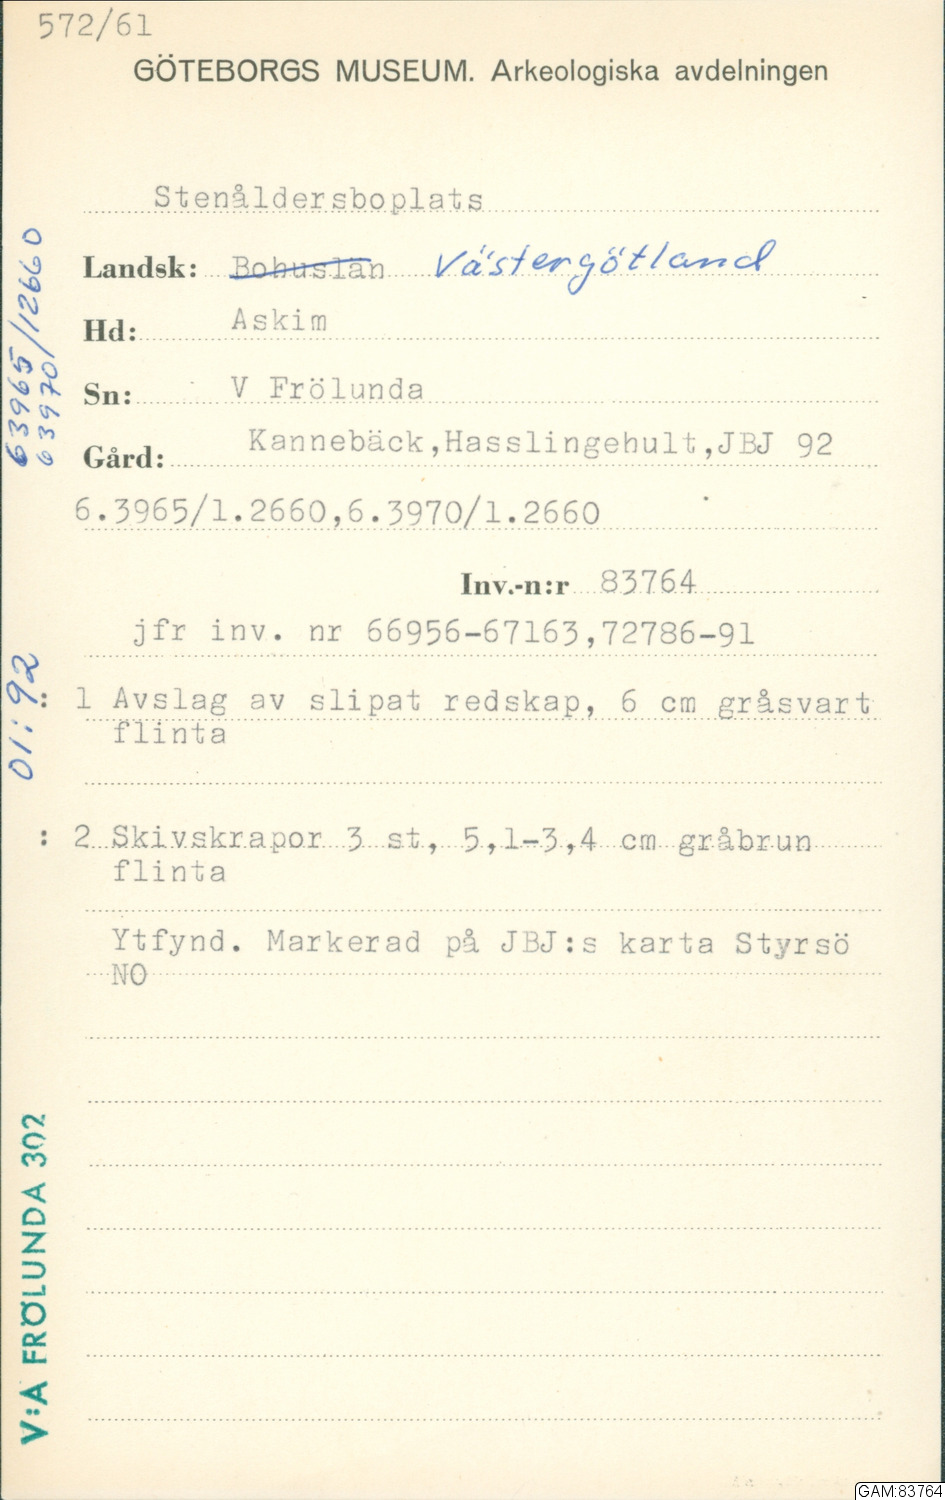 572/61
GÖTEBORGS MUSEUM. Arkeologiska avdelningen
Stenåldersboplats
Landsk: Bohuslän Västergötland
Hd: Askim
Sn: V Frölunda
Gård: Kannebäck,Hasslingehult,JBJ 92
6.3965/1.2660,6.3970/1.2660
Inv.-n:r 83764
jfr inv. nr 66956-67163,72786-91
: 1 Avslag av slipat redskap, 6 cm gråsvart
flinta
: 2 Skivskrapor 3 st, 5,1-3,4 cm gråbrun
flinta
Ytfynd. Markerad på JBJ:s karta Styrsö
NO
63965/12660
63970/
01:92
V:A FRÖLUNDA 302
GAM:83764